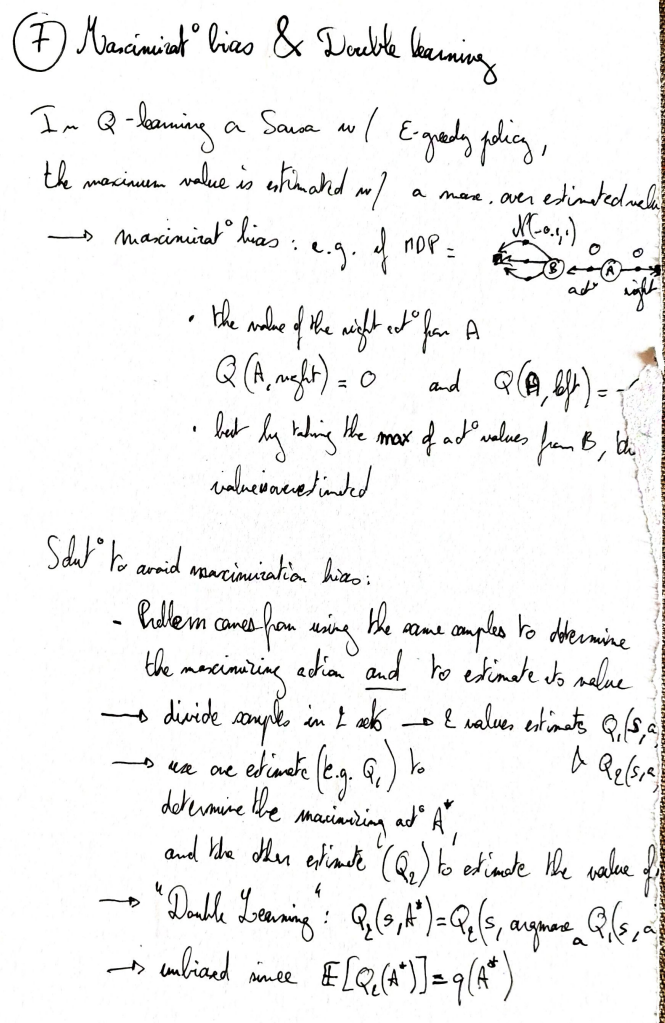 ⑦ Maximizat° bias & Double learning
In Q-learning a Sarsa w/ ε-greedy policy,
the maximum value is estimated w/ a max. over estimated valu
→ maximizat° bias: e.g. if MDP =
N(-0.1,1)
0 0
B A
act° right
• the value of the right act° from A
Q(A, right) = 0 and Q(A, left) = -
• but by taking the max of act° values from B,
value is overestimated
Solut° to avoid maximization bias:
- Problem comes from using the same samples to determine
the maximizing action and to estimate its value
→ divide samples in 2 sets → 2 values estimates Q₁(s,a
& Q₂(s,a
→ use one estimate (e.g. Q₁) to
determine the maximizing act° A*,
and the other estimate (Q₂) to estimate the value of
→ "Double Learning": Q₂(s,A*) = Q₂(s, argmax_a Q₁(s,a
→ unbiased since E[Q₂(A*)] = q(A*)